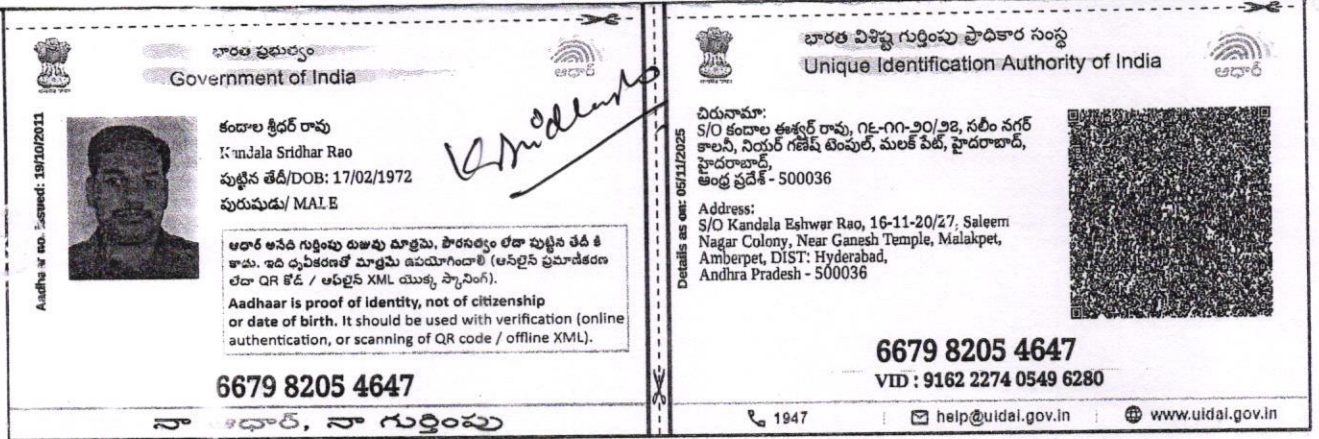 భారత ప్రభుత్వం
Government of India
ఆధార్
Aadhaar no. issued: 19/10/2011
కందాల శ్రీధర్ రావు
Kandala Sridhar Rao
పుట్టిన తేదీ/DOB: 17/02/1972
పురుషుడు/ MALE
ఆధార్ అనేది గుర్తింపు రుజువు మాత్రమే, పౌరసత్వం లేదా పుట్టిన తేదీ కి
కాదు. ఇది ధృవీకరణతో మాత్రమే ఉపయోగించాలి (ఆన్‌లైన్ ప్రమాణీకరణ
లేదా QR కోడ్ / ఆఫ్‌లైన్ XML యొక్క స్కానింగ్).
Aadhaar is proof of identity, not of citizenship
or date of birth. It should be used with verification (online
authentication, or scanning of QR code / offline XML).
6679 8205 4647
నా ఆధార్, నా గుర్తింపు
భారత విశిష్ట గుర్తింపు ప్రాధికార సంస్థ
Unique Identification Authority of India
ఆధార్
Details as on: 05/11/2025
చిరునామా:
S/O కందాల ఈశ్వర్ రావు, ౧౬-౧౧-౨౦/౨౭, సలీం నగర్
కాలనీ, నియర్ గణేష్ టెంపుల్, మలక్ పేట్, హైదరాబాద్,
హైదరాబాద్,
ఆంధ్ర ప్రదేశ్ - 500036
Address:
S/O Kandala Eshwar Rao, 16-11-20/27, Saleem
Nagar Colony, Near Ganesh Temple, Malakpet,
Amberpet, DIST: Hyderabad,
Andhra Pradesh - 500036
6679 8205 4647
VID : 9162 2274 0549 6280
1947
help@uidai.gov.in
www.uidai.gov.in